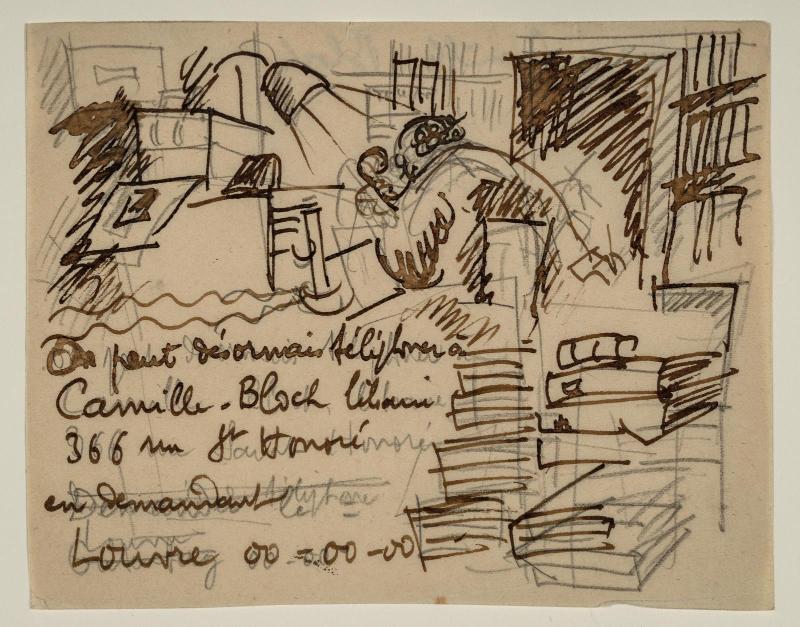 On peut désormais téléphoner à
Camille-Bloch libraire
366 rue St Honoré
en demandant
Louvre 00-00-00